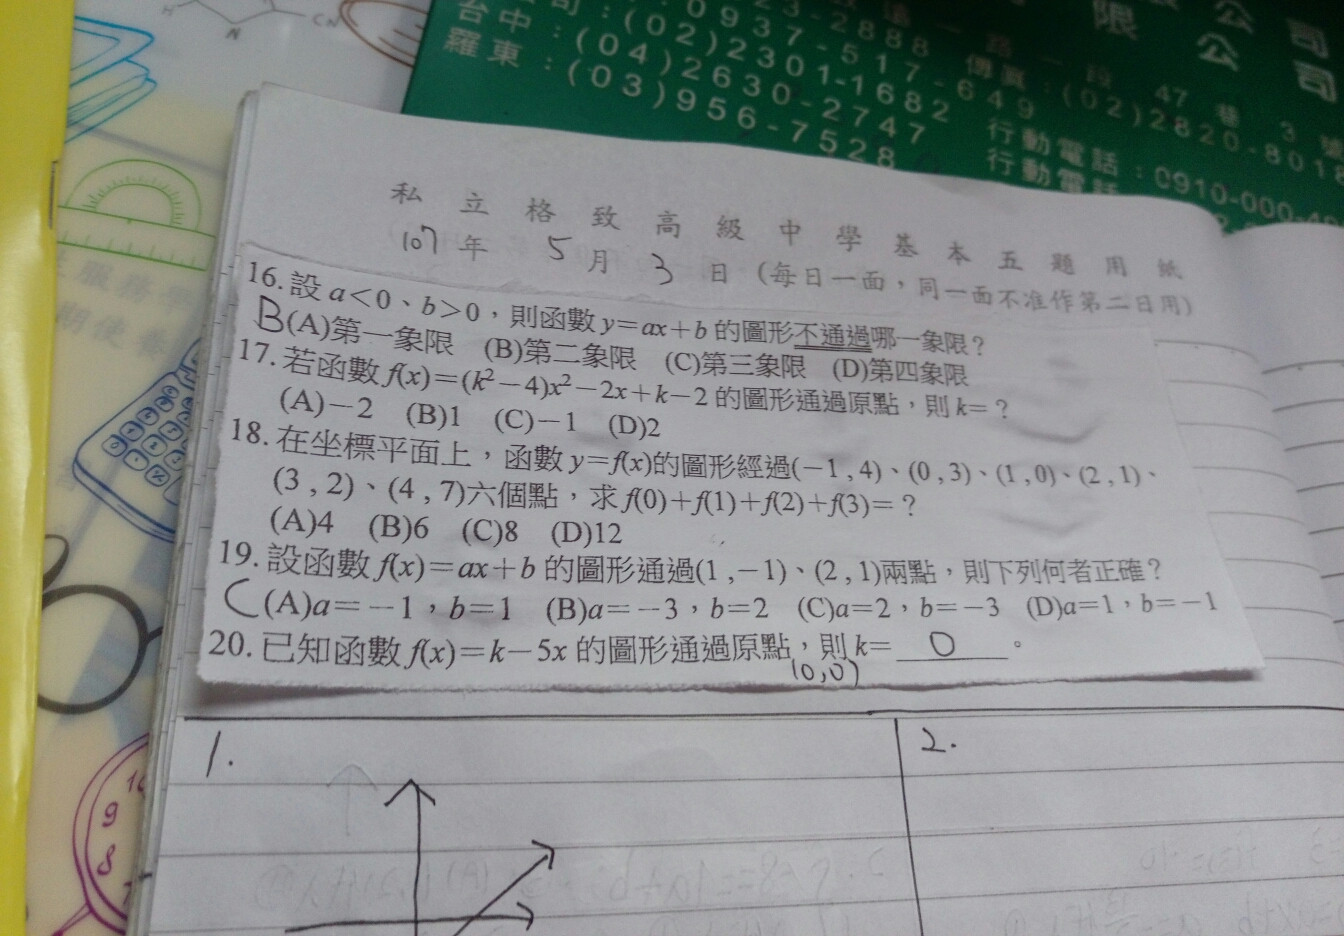 限 公 司
公 司
0937-517-649
台中：(02)2301-1682
羅東：(04)2630-2747
(03)956-7528
傳真：(02)2820-8018
47 巷 3 號
行動電話：0910-000-
行動電話
CN
N
私立格致高級中學基本五題用紙
107年 5月 3日（每日一面，同一面不准作第二日用）
16. 設 a<0、b>0，則函數 y=ax+b 的圖形不通過哪一象限？
B (A)第一象限 (B)第二象限 (C)第三象限 (D)第四象限
17. 若函數 f(x)=(k²−4)x²−2x+k−2 的圖形通過原點，則 k=？
(A)−2 (B)1 (C)−1 (D)2
18. 在坐標平面上，函數 y=f(x)的圖形經過(−1,4)、(0,3)、(1,0)、(2,1)、
(3,2)、(4,7)六個點，求 f(0)+f(1)+f(2)+f(3)=？
(A)4 (B)6 (C)8 (D)12
19. 設函數 f(x)=ax+b 的圖形通過(1,−1)、(2,1)兩點，則下列何者正確？
C (A)a=−1，b=1 (B)a=−3，b=2 (C)a=2，b=−3 (D)a=1，b=−1
20. 已知函數 f(x)=k−5x 的圖形通過原點，則 k= 0 。
(0,0)
1.
2.
9
8